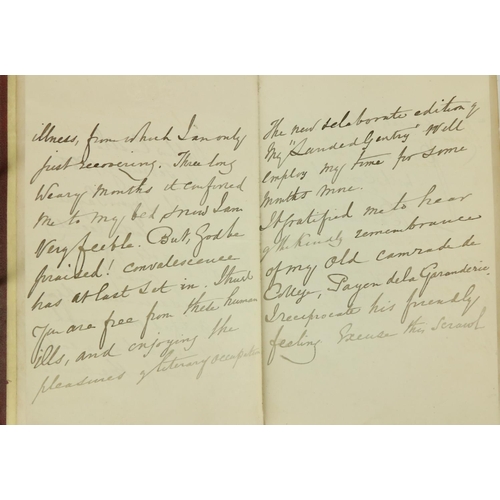 illness, from which I am only
just recovering. Three long
weary months it confined
me to my bed & now I am
very feeble. But, God be
praised! convalescence
has at last set in. I trust
you are free from these human
ills, and enjoying the
pleasures of literary occupation
The new & elaborate edition of
My "Landed Gentry" will
employ my time for some
months more.
It gratified me to hear
of the kindly remembrance
of my old camrade de
College, Payen de la Garanderie.
I reciprocate his friendly
feeling Excuse this scrawl